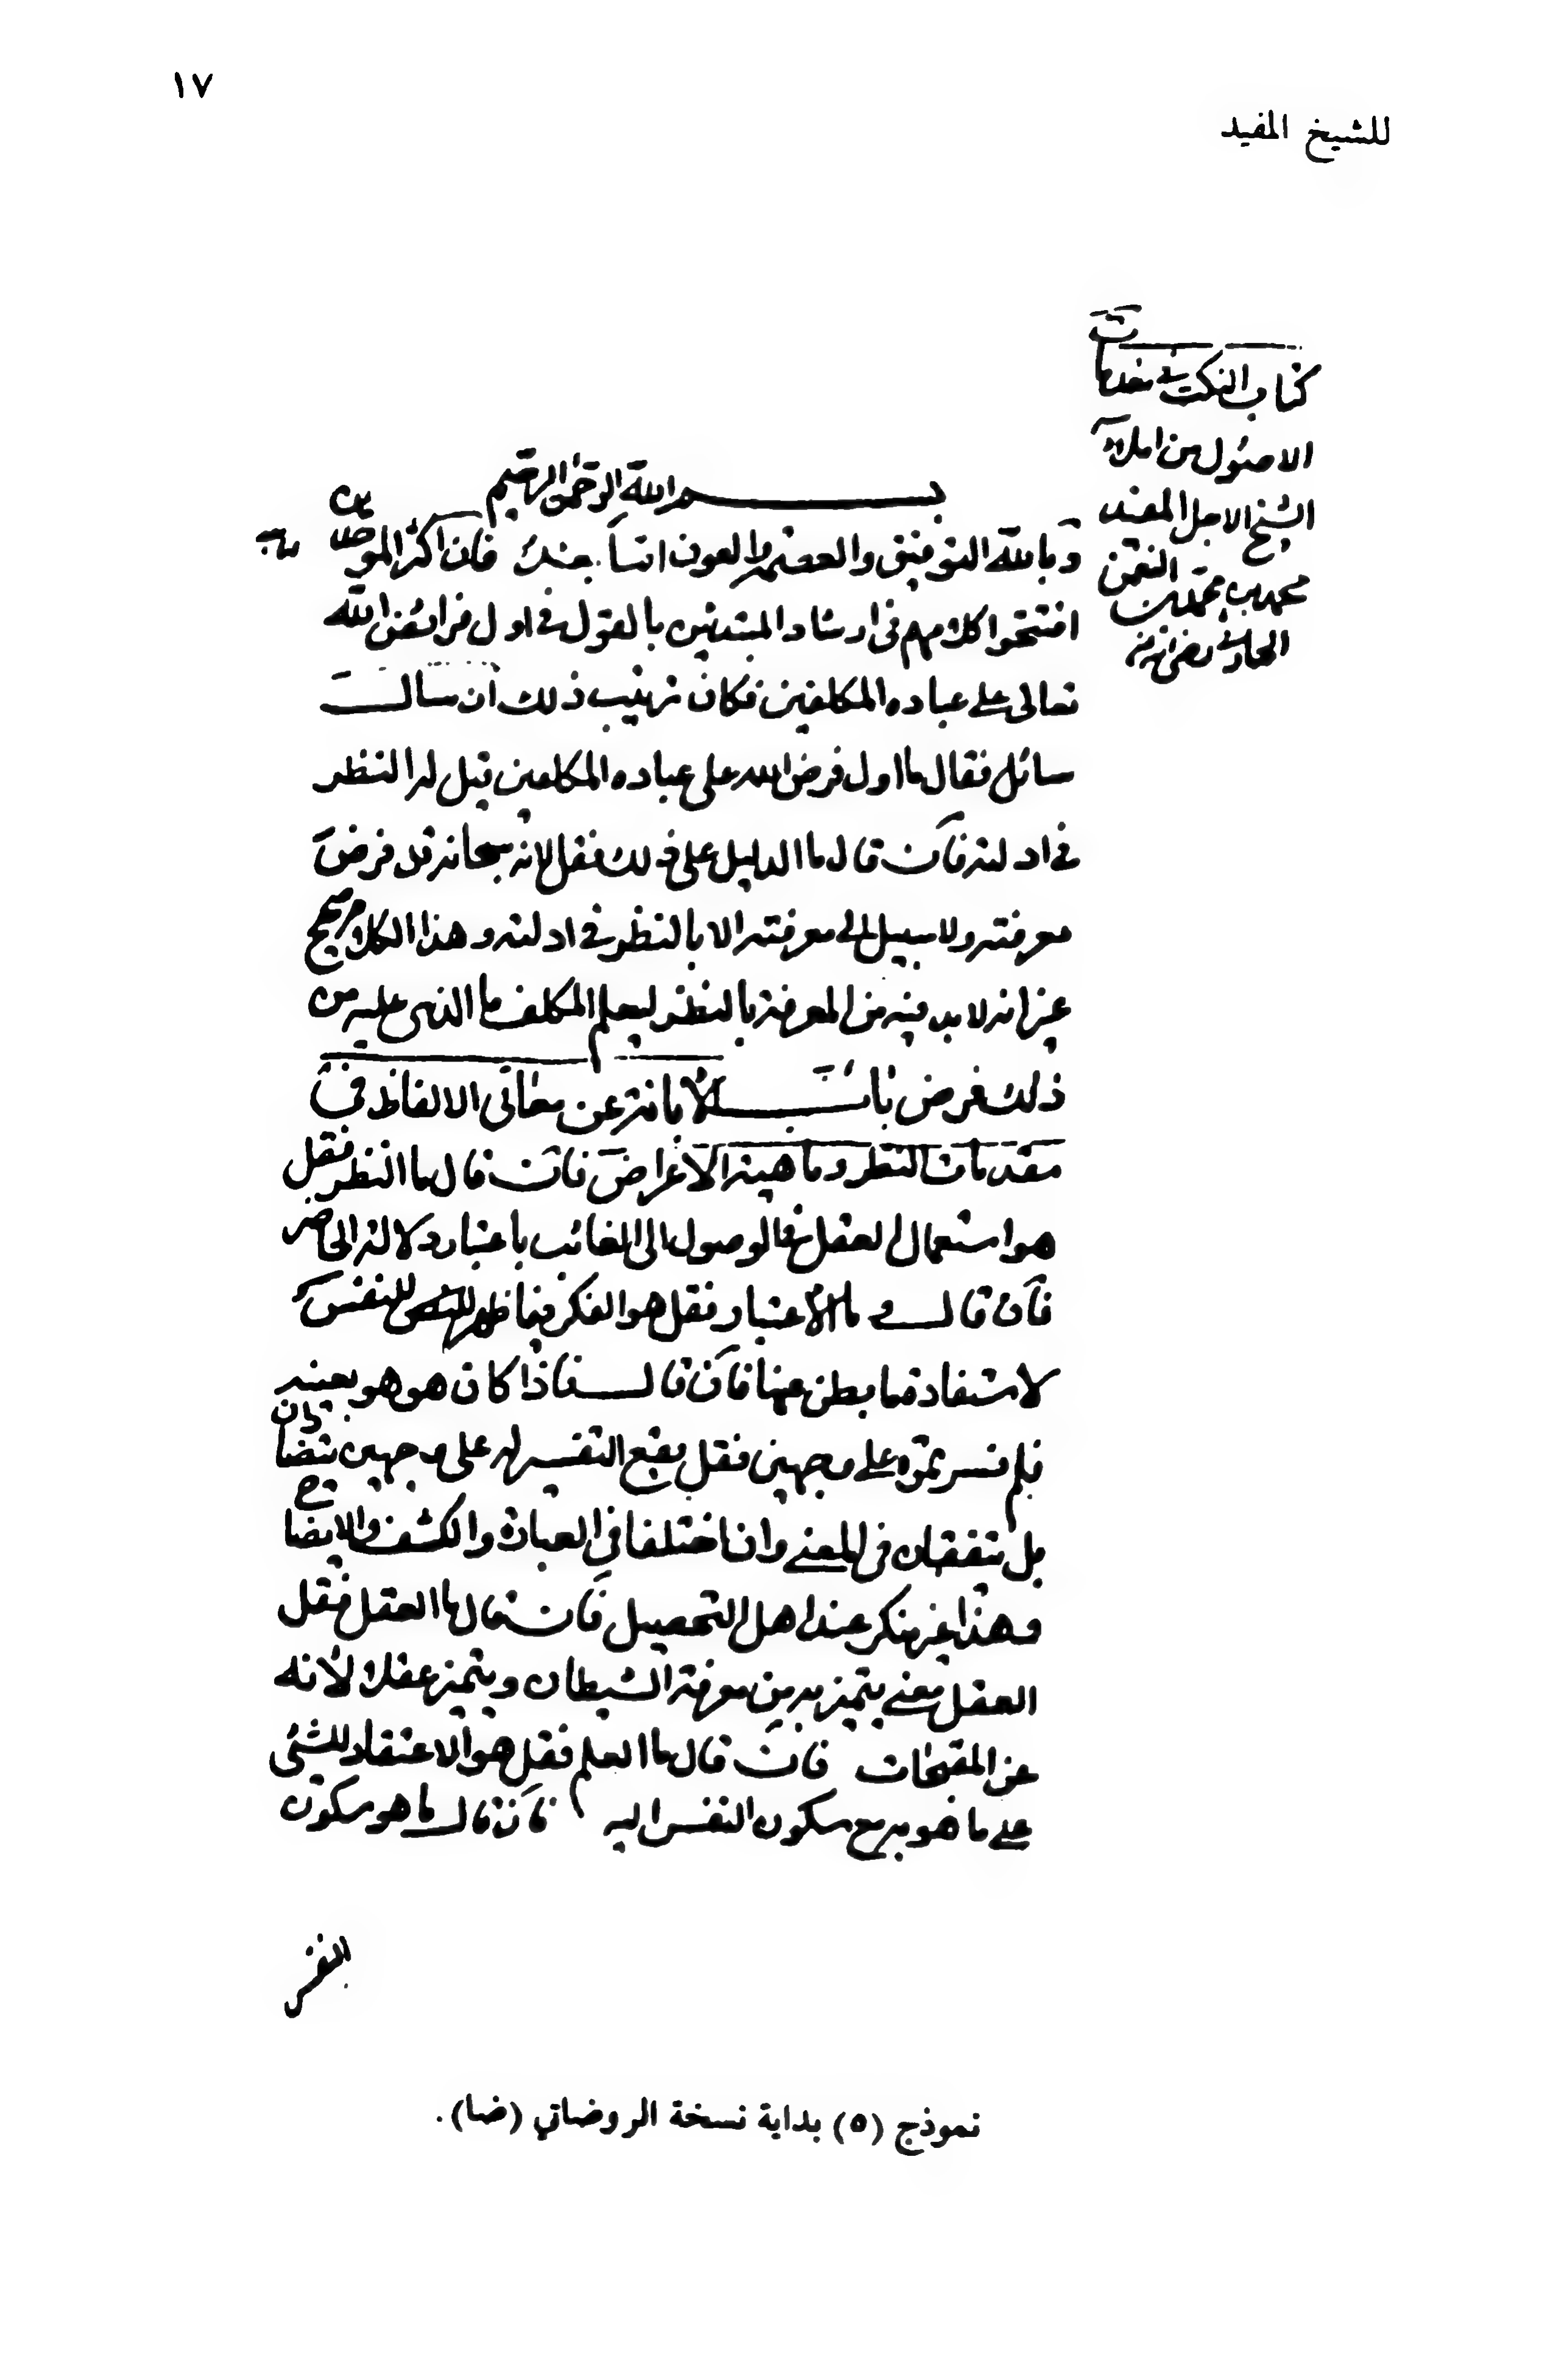 ١٧
للشيخ المفيد
كتاب النكت في مقدمات
الاصول من املاء
الشيخ الاجل المفيد
محمد بن محمد بن النعمن
الحارثي رضي الله عنه
بسم الله الرحمن الرحيم
وبالله التوفيق والعصمة والعون فان اكثر الموحدين
افتتحوا كلامهم في ارشاد المبتدئين بالقول في اول فرائض الله
تعالى على عباده المكلفين فكان ترتيب ذلك ان سالت
سائل فقال ما اول فرض الله على عباده المكلفين قيل له النظر
في ادلته فان قال ما الدليل على ذلك فقل لانه سبحانه قد فرض
معرفته ولا سبيل الى معرفته الا بالنظر في ادلته وهذا الكلام صحيح
غير انه لا بد فيه من المعرفة بالنظر ليعلم المكلف ما الذى عليه من
ذلك فرض باب الابانة عن معانى الالفاظ في
مقدمات النظر وماهية الاغراض فان قال ما النظر فقل
هو استعمال العقل في الوصول الى الغائب باعتبار دلالة الحاضر
فان قال وما الاعتبار فقل هو الفكر فيما ظهر للنفس
لاستفادة ما بطن عنها فان قال فاذا كان هو هو بعينه
فلم فسرتموه على وجهين فقل يقع التفسير له على وجهين يتضادان
بل يتفقان في المعنى وان اختلفا في العبارة والكشف والايضاح
وهذا غير منكر عند اهل التحصيل فان قال ما العقل فقل
العقل معنى يتميز به من معرفة الشيطان ويتميز عقلا لأنه
عن المقبحات فان قال ما العلم فقل هو الاعتقاد للشئ
على ما هو به مع سكون النفس اليه فان قال ما هو سكون
النفس
نموذج (٥) بداية نسخة الروضاتي (ضا).